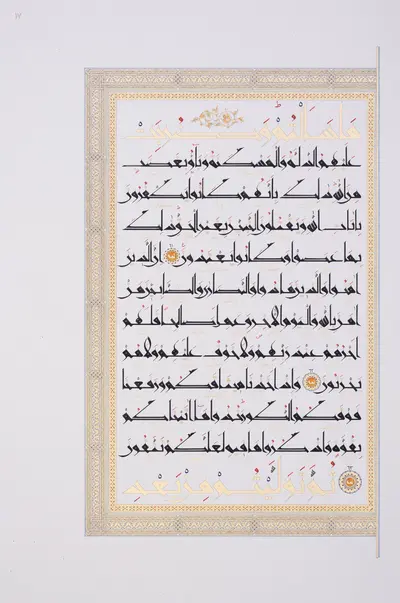 ما سألتم وضربت
عليهم الذلة والمسكنة وباؤ بغضب
من الله ذلك بأنهم كانوا يكفرون
بآيات الله ويقتلون النبيين بغير الحق ذلك
بما عصوا وكانوا يعتدون إن الذين
آمنوا والذين هادوا والنصارى والصابئين من
آمن بالله واليوم الآخر وعمل صالحا فلهم
أجرهم عند ربهم ولا خوف عليهم ولا هم
يحزنون وإذ أخذنا ميثاقكم ورفعنا
فوقكم الطور خذوا ما آتيناكم
بقوة واذكروا ما فيه لعلكم تتقون
ثم توليتم من بعد